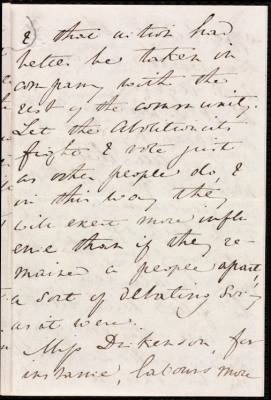 & that action had
better be taken in
company with the
rest of the community.
Let the Abolitionists
fight & vote just
as other people do, &
in this way they
will exert more influ
ence than if they re
mained a people apart,
a sort of Debating Society
as it were.
Miss Dickenson, for
instance, labours more